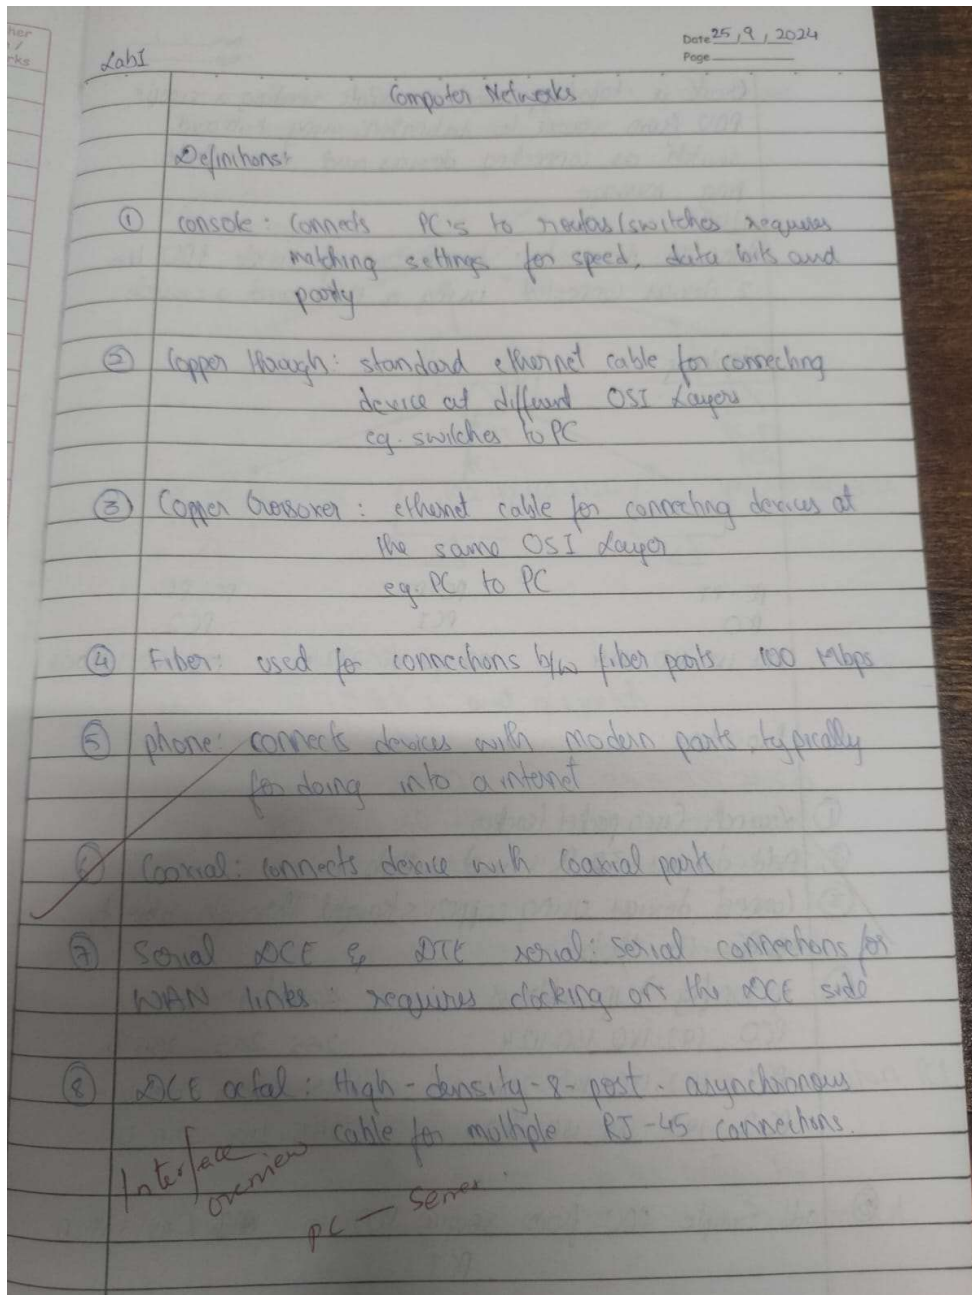 her
/
rks
Date 25, 9, 2024
Page
Lab I
Computer Networks
Definitions:
① console: Connects PC's to routers/switches requires
matching settings for speed, data bits and
parity
② Copper through: standard ethernet cable for connecting
device at different OSI Layers
eg. switches to PC
③ Copper Crossover: ethernet cable for connecting devices at
the same OSI Layer
eg PC to PC
④ Fiber: used for connections b/w fiber ports 100 Mbps
⑤ phone: connects devices with modern ports, typically
for doing into a internet
⑥ Coaxial: connects device with Coaxial ports
⑦ Serial DCE & DTE serial: serial connections for
WAN links: requires clocking on the DCE side
⑧ DCE octal: High-density-8-port. asynchronous
cable for multiple RJ-45 connections.
Interface
overview
PC — Server